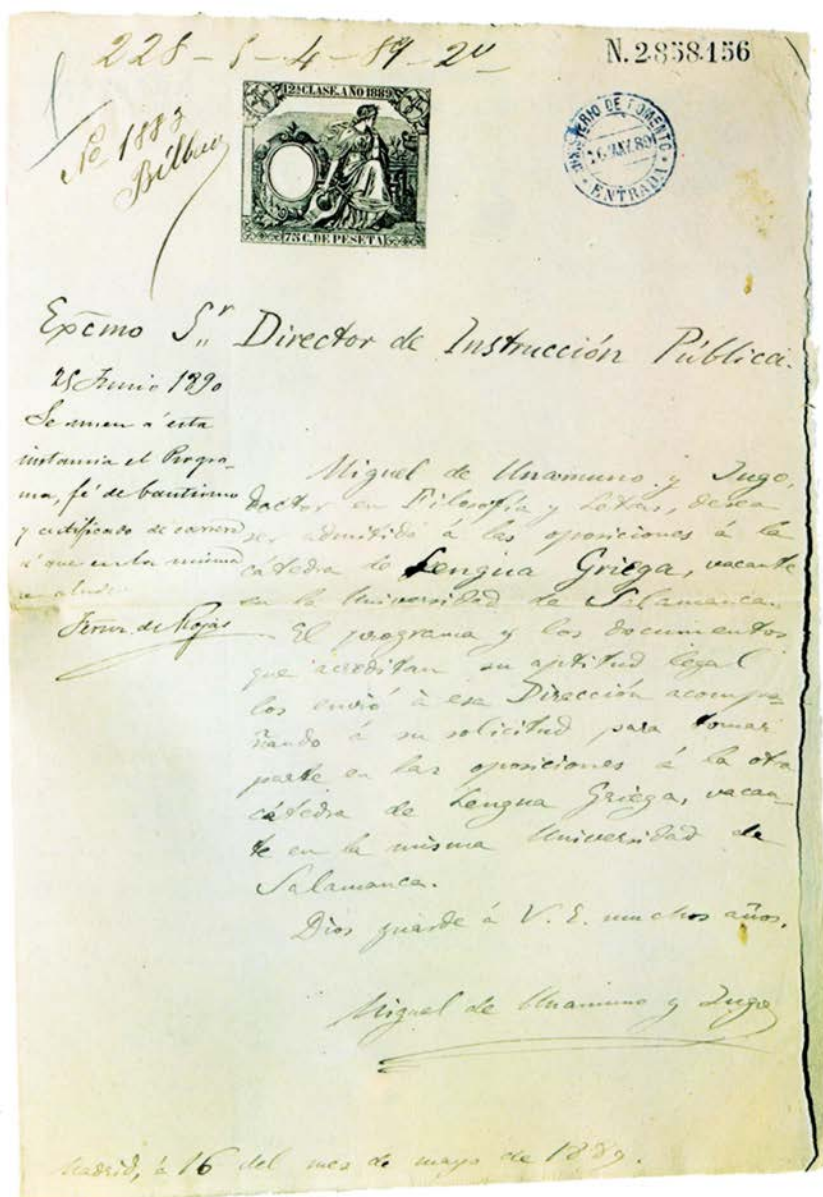 228-5-4-89-2º
N. 2.858.156
Nº 1883
Bilbao
12ª CLASE. AÑO 1889
75 C. DE PESETA
MINISTERIO DE FOMENTO
89
ENTRADA
Excmo Sr Director de Instrucción Pública.
25 Junio 1890
Se unen á esta
instancia el Progra-
ma, fé de bautismo
y certificado de carrera
á que en la misma
se alude.
Ferrn. de Rojas
Miguel de Unamuno y Jugo,
Doctor en Filosofía y Letras, desea
ser admitido á las oposiciones á la
cátedra de Lengua Griega, vacante
en la Universidad de Salamanca.
El programa y los documentos
que acreditan su aptitud legal
los envió á esa Dirección acompa-
ñando á su solicitud para tomar
parte en las oposiciones á la otra
cátedra de Lengua Griega, vacan-
te en la misma Universidad de
Salamanca.
Dios guarde á V. E. muchos años.
Miguel de Unamuno y Jugo
Madrid, á 16 del mes de mayo de 1889.